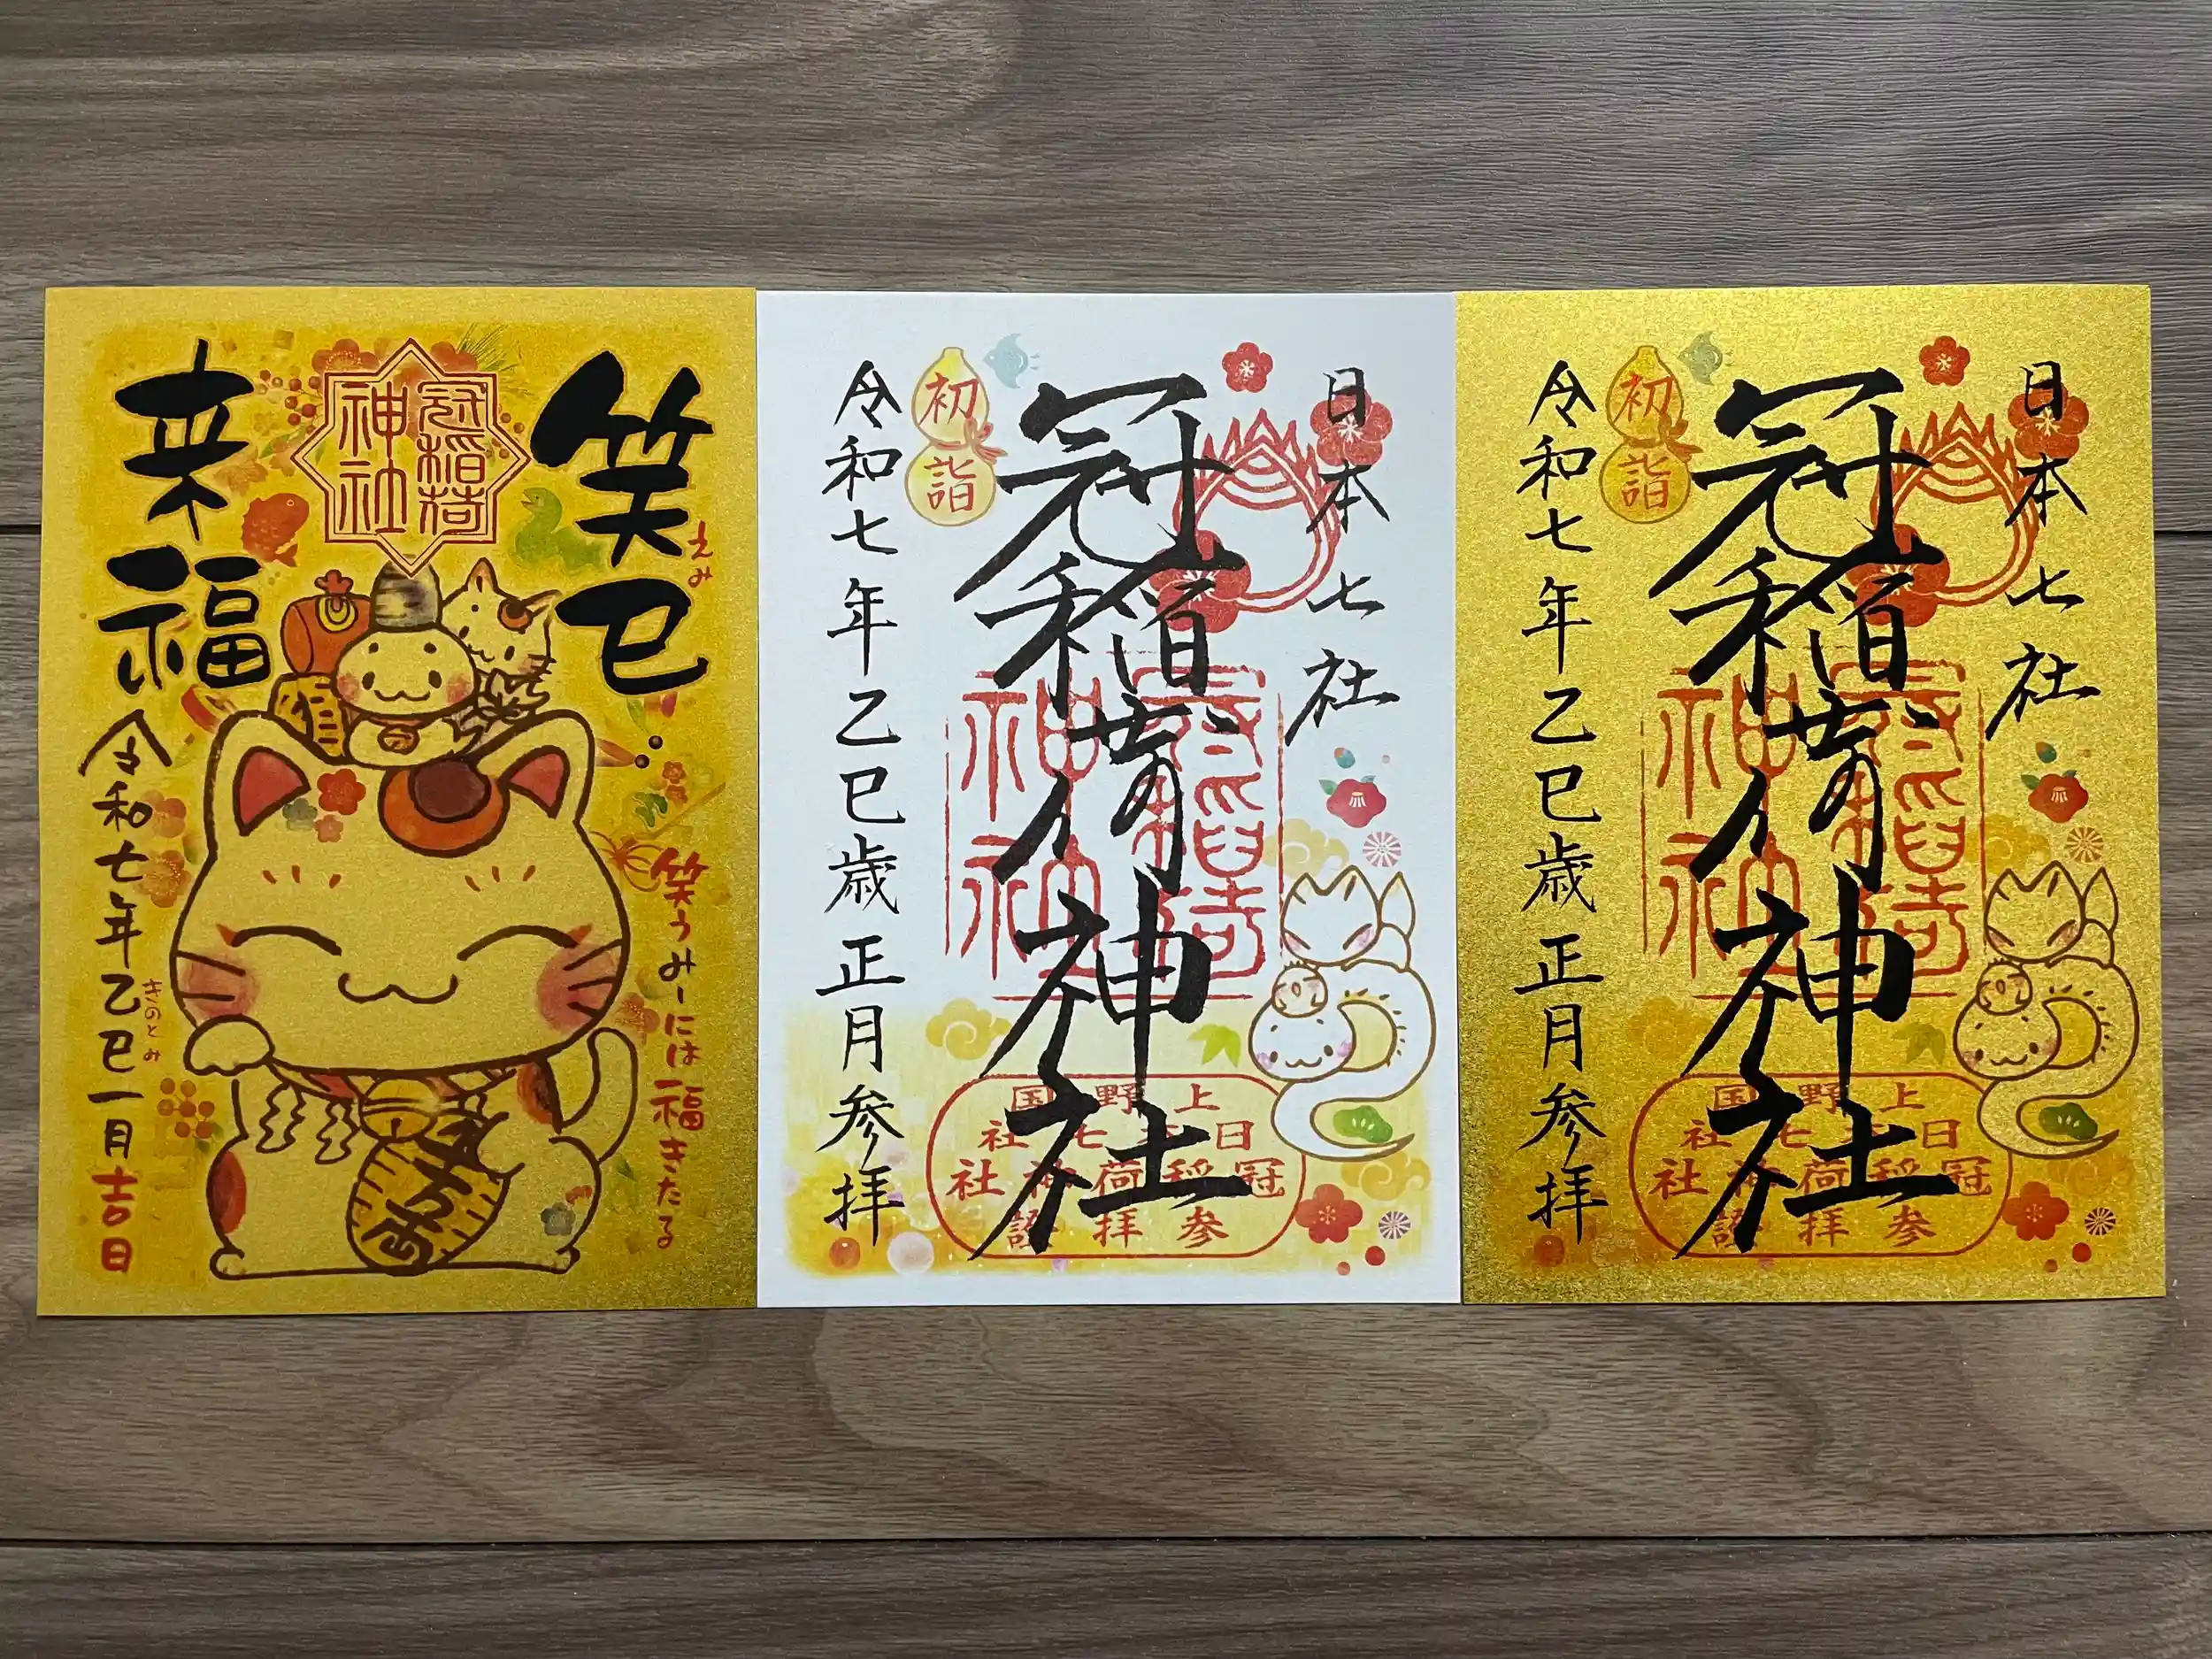 笑巳
えみ
来福
冠稲荷
神社
笑うみーには福きたる
令和七年乙巳一月吉日
きのとみ
日本七社
冠稲荷神社
初詣
令和七年乙巳歳正月参拝
上野国
日本七社
冠稲荷神社
参拝證
日本七社
冠稲荷神社
初詣
令和七年乙巳歳正月参拝
上野国
日本七社
冠稲荷神社
参拝證